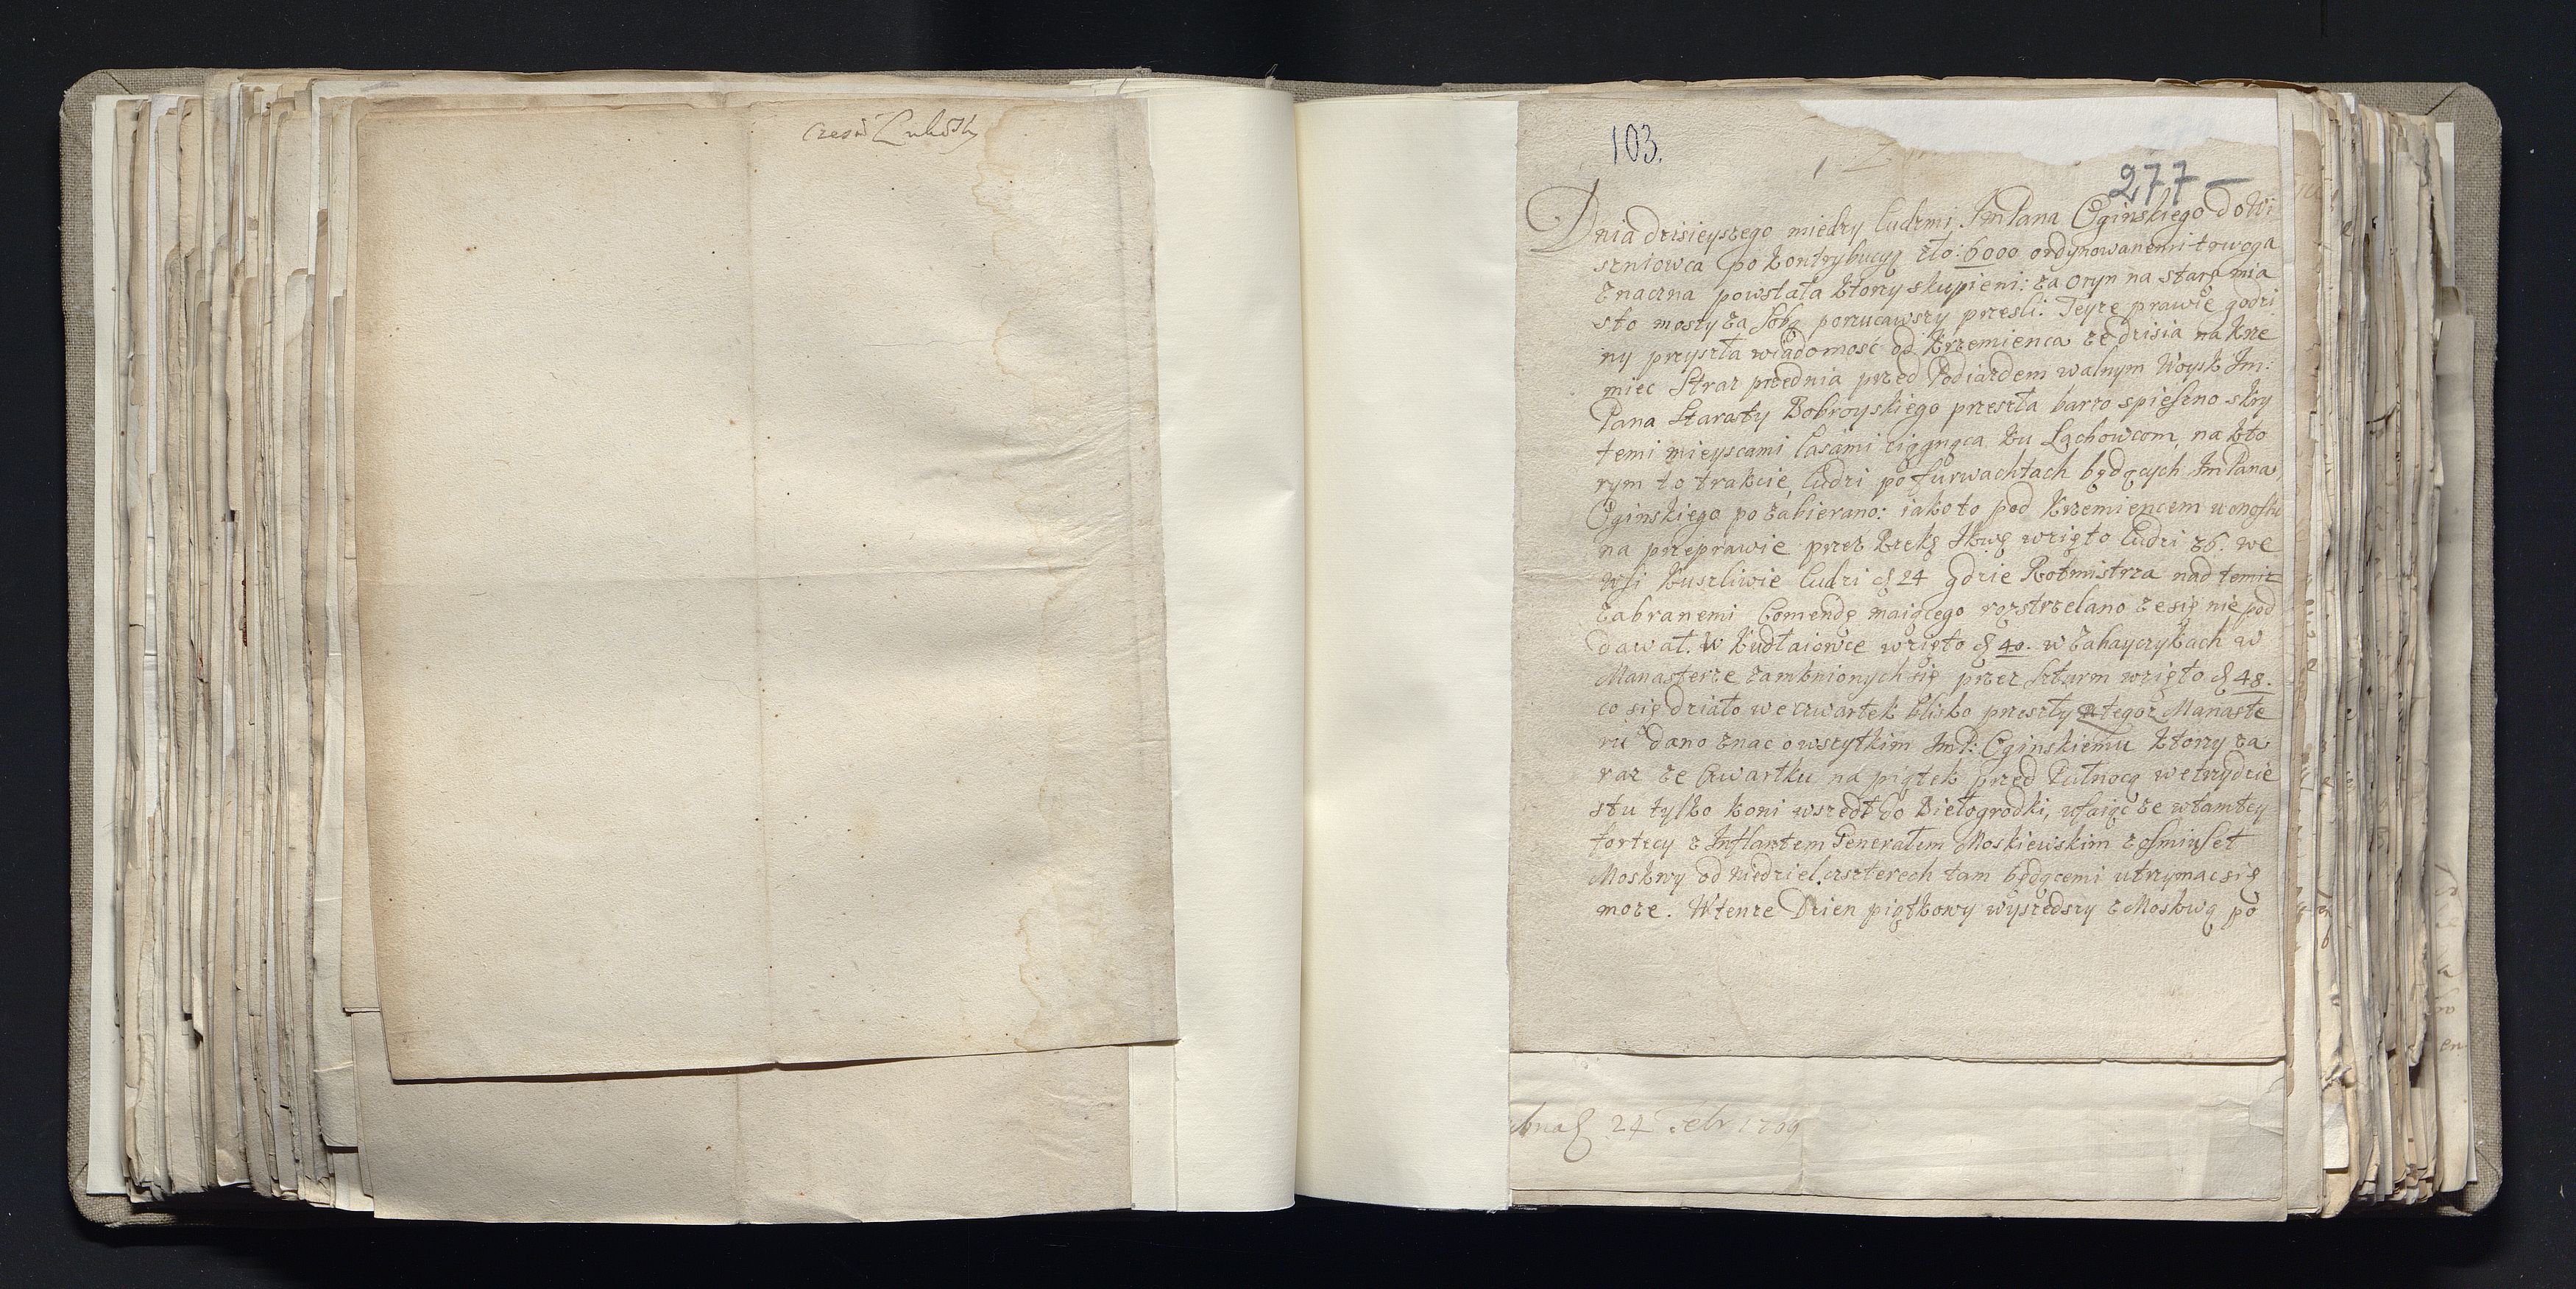 103.
277
Dnia dzisieyszego między ludzmi ImPana Oginskiego do Wi
szniowca po kontrybucyą zło: 6000 ordynowanemi trwoga
znaczna powstała ktorzy skupieni: za Oryn na stare mia
sto mosty za sobą porzucawszy przesli: Teyze prawie godzi
ny przyszła wiadomość od Krzemienca ze dzisia na Krze
miec Straz przednia przed Podiazdem walnym Woysk Im:
Pana Starosty Bobroyskiego przeszła barzo spieszno skry
temi mieyscami lasami ciągnąca ku Lachowcom, na kto
rym to trakcie, ludzi po furwachtach będących ImPana
Oginskiego po zabierano: iako to pod Krzemiencem
na przeprawie przez Rzekę Ikwę wzięto ludzi 26. we
Wsi Kuszliwie ludzi 24 gdzie Rotmistrza nad temiz
zabranemi Comendę maiącego rozstrzelano ze się nie pod
dawał. W Kudłaiowce wzięto 40. w Zahayczykach w
Manasterze zamknionych się przez szturm wzięto 48.
co się działo we czwartek blisko przeszły z tegoz Manaste
ru dano znac o wszytkim ImP: Oginskiemu ktorzy za
raz ze Czwartku na piątek przed Pułnocą we trzydzie
stu tylko koni wszedł do Białogrodki, ufaiąc ze w tamtey
fortecy z Inflantem Generałem Moskiewskim z osmiuset
Moskwy od niedziel czterech tam będącemi utrzymac się
moze. W tenze Dzien piątkowy wyszedszy z Moskwą po
24 Febr 1709